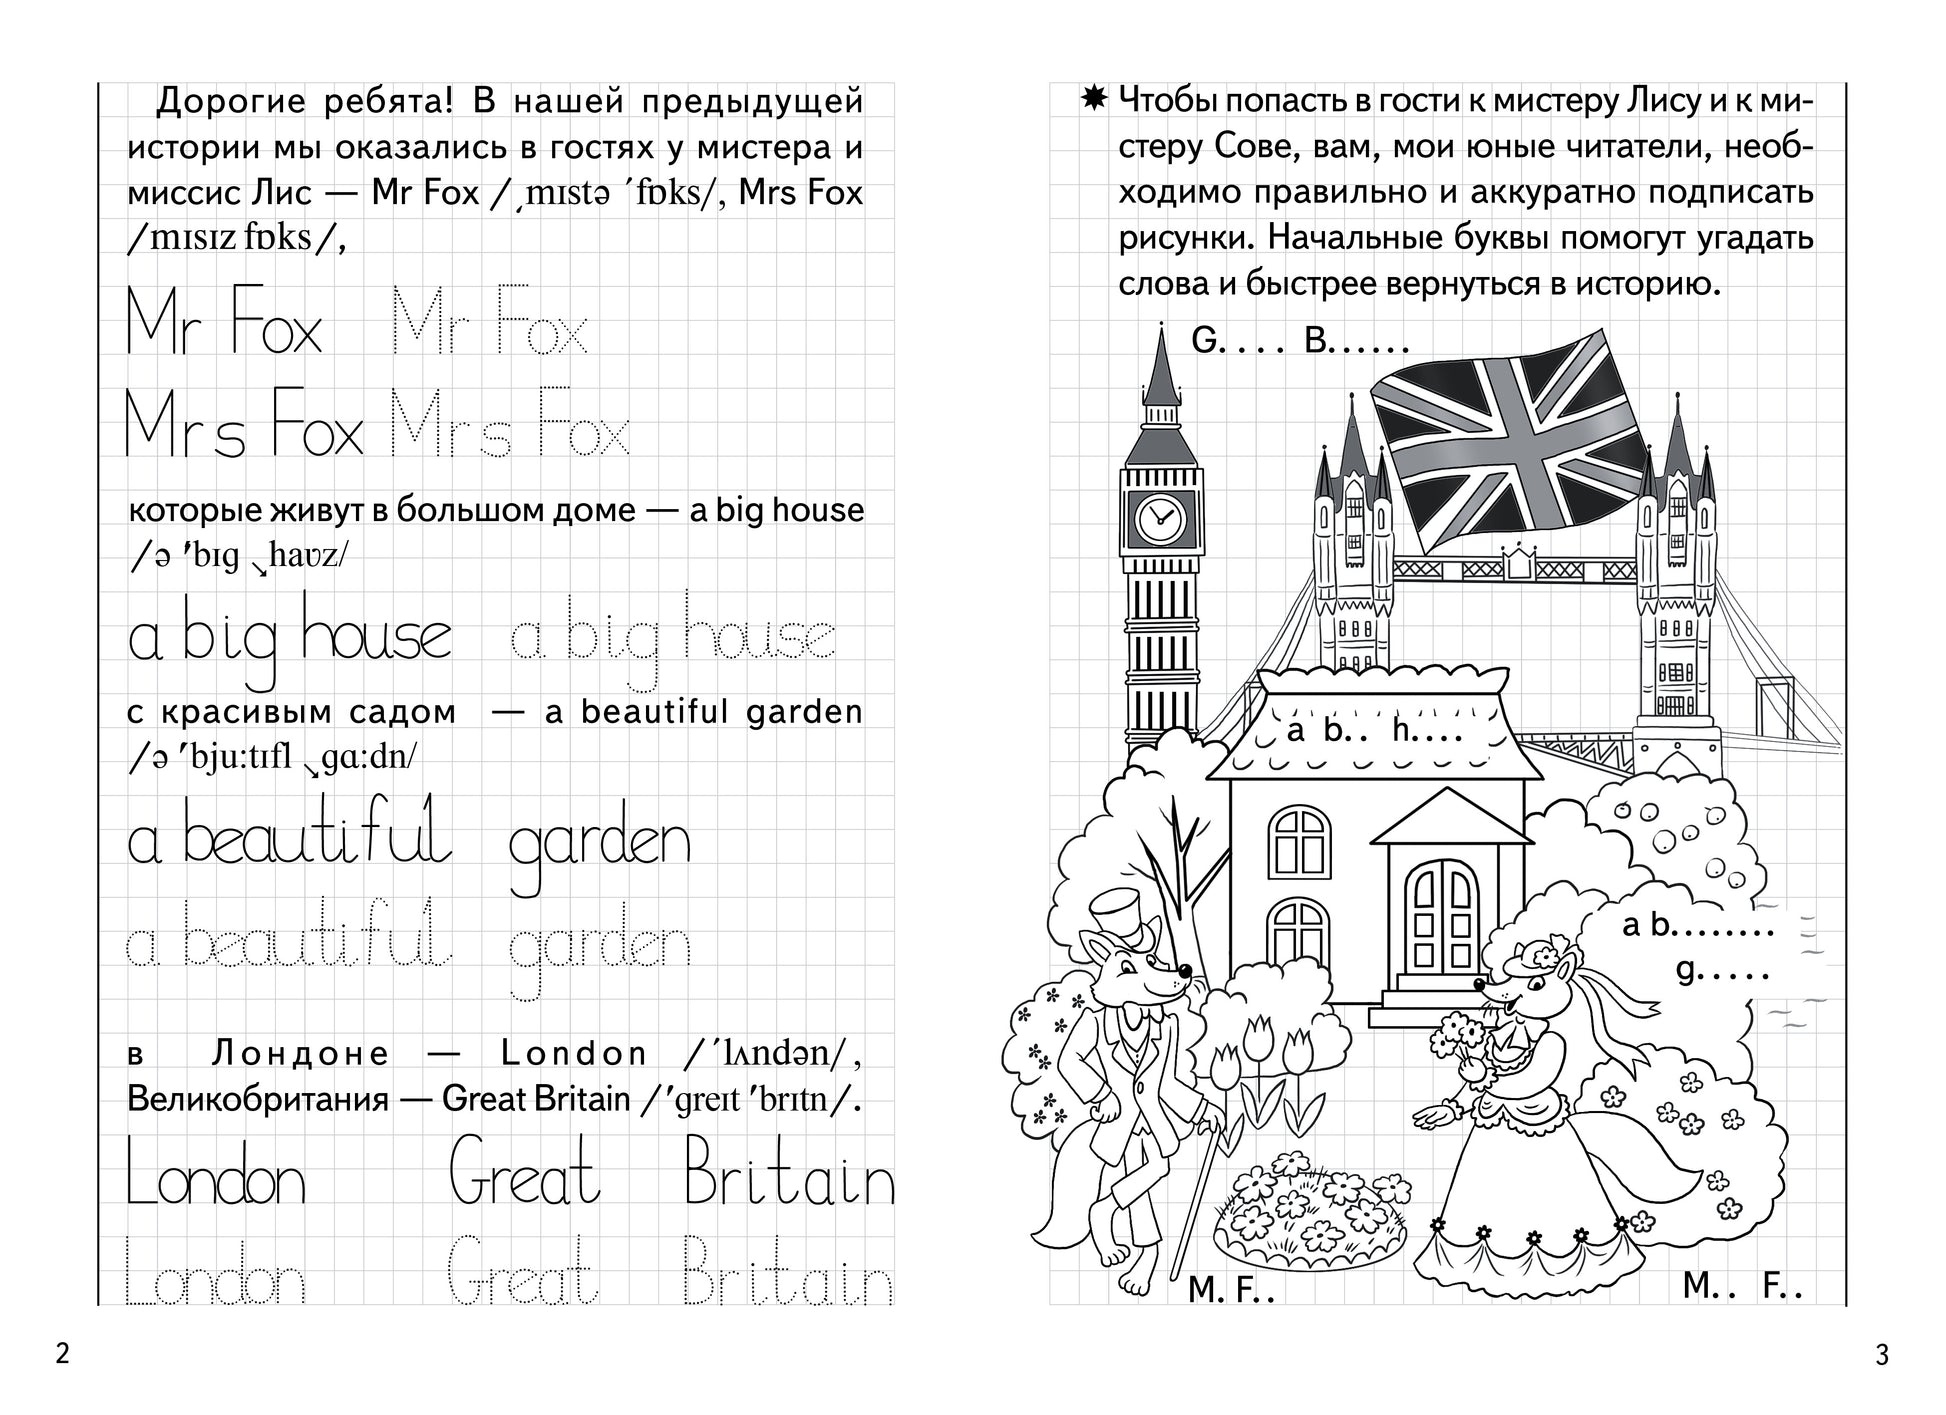 Дорогие ребята! В нашей предыдущей
истории мы оказались в гостях у мистера и
миссис Лис — Mr Fox /ˌmɪstə ˈfɒks/, Mrs Fox
/mɪsɪz fɒks/,
Mr Fox Mr Fox
Mrs Fox Mrs Fox
которые живут в большом доме — a big house
/ə ′bɪg ↘haʊz/
a big house a big house
с красивым садом — a beautiful garden
/ə ′bju:tɪfl ↘gɑ:dn/
a beautiful garden
a beautiful garden
в Лондоне — London /′lʌndən/,
Великобритания — Great Britain /′greɪt ′brɪtn/.
London Great Britain
London Great Britain
2
✸ Чтобы попасть в гости к мистеру Лису и к ми-
стеру Сове, вам, мои юные читатели, необ-
ходимо правильно и аккуратно подписать
рисунки. Начальные буквы помогут угадать
слова и быстрее вернуться в историю.
G. . . . B. . . . . .
a b. . h. . . .
a b. . . . . . . .
g. . . . .
M. F. .
M. . F. .
3